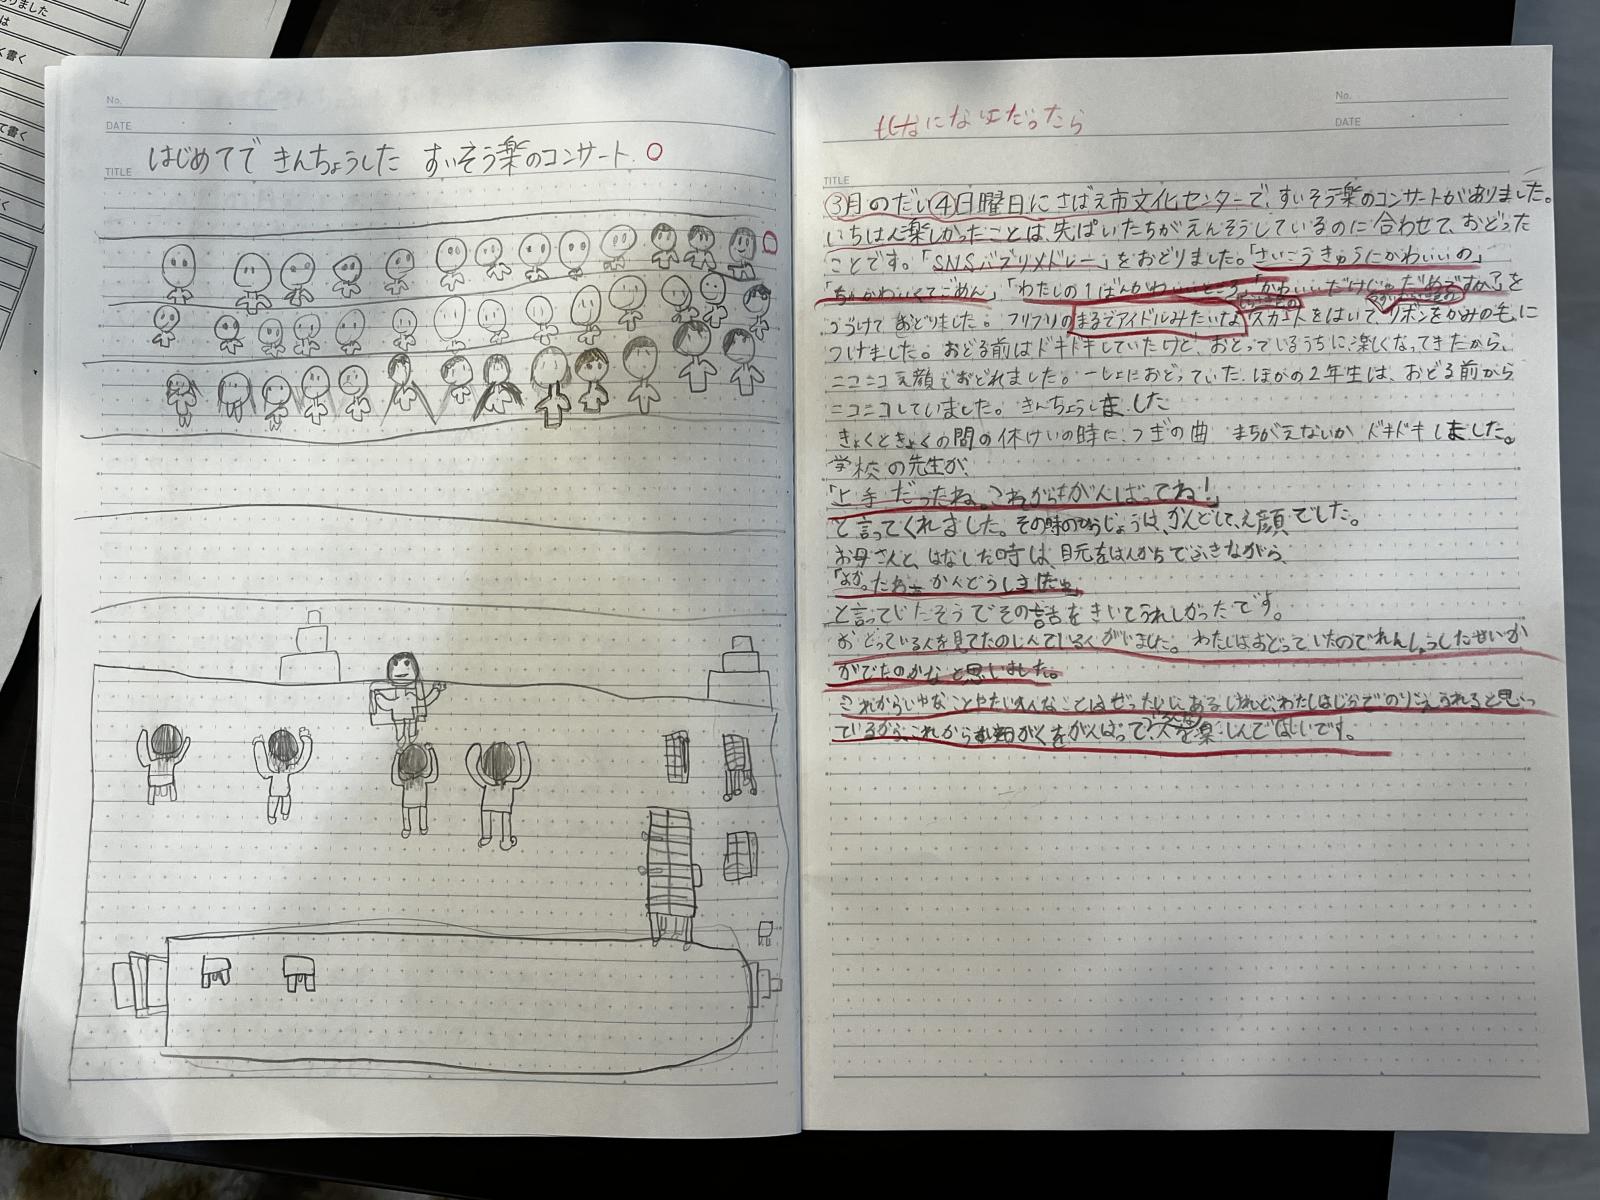 りました
は
く書く
て書く
く
No.
DATE
TITLE はじめてで きんちょうした すいそう楽のコンサート
No.
DATE
になにだったら
TITLE
③月のだい④日曜日にさばえ市文化センターで、すいそう楽のコンサートがありました。
いちばん楽しかったことは、先ぱいたちがえんそうしているのに合わせて、おどった
ことです。「SNSバブリメドレー」をおどりました。「さいこうきゅうにかわいいの」
「ちゅかわいくてごめん」「わたしの1ばんかわいいところ」「かわいいだけじゃだめですか」を
つづけておどりました。フリフリのまるでアイドルみたいなスカートをはいて、リボンをかみの毛に
つけました。おどる前はドキドキしていたけど、おどっているうちに楽しくなってきたから、
ニコニコえ顔でおどれました。一しょにおどっていた、ほかの2年生は、おどる前から
ニコニコしていました。きんちょうしました
きょくときょくの間の休けいの時に、つぎの曲 まちがえないか ドキドキしました。
学校の先生が、
「上手だったね。これからもがんばってね!」
と言ってくれました。その時のひょうじょうは、かんどして、え顔でした。
お母さんと、はなした時は、目元をはんかちでふきながら、
「よかったねー かんどうしました」
と言っていたそうでその話をきいてうれしかったです。
おどっている人を見てたのしんでいるくがいました。わたしはおどっていたのでれんしゅうしたせいか
がでたのかなと思いました。
これからいやなことやたいへんなことはぜったいにあるけれど、わたしはじぶんでのりこえられると思っ
ているから、これからもがくをがんばって、を楽しんでほしいです。